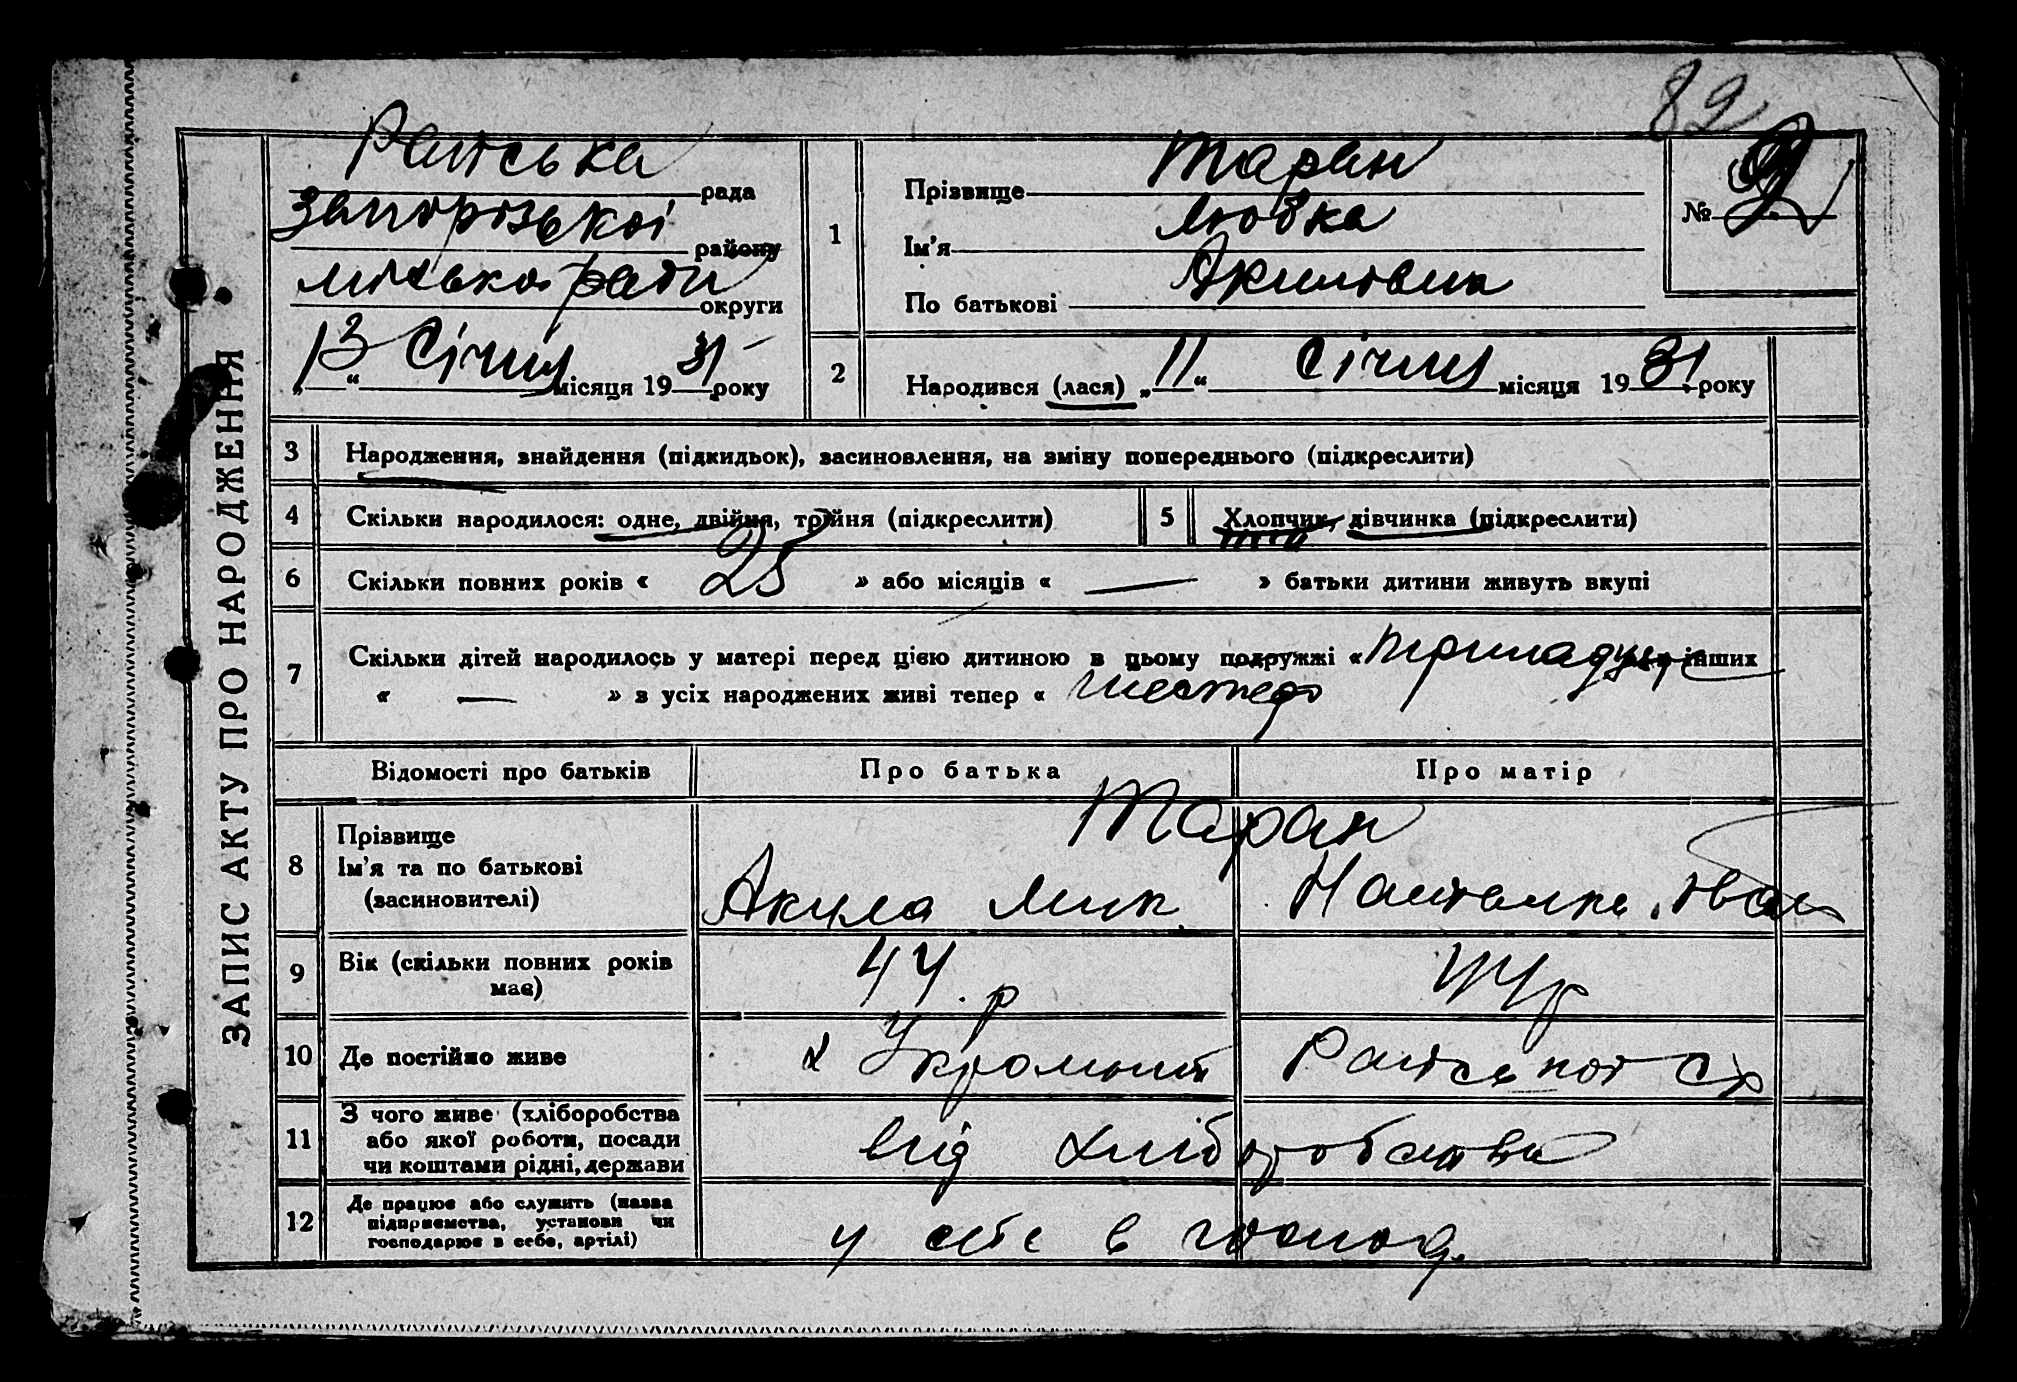 82
ЗАПИС АКТУ ПРО НАРОДЖЕННЯ
Раїська рада
Запорізької району
міської ради округи
„13“ Січня місяця 1931 року
1
Прізвище Таран
Ім'я Любка
По батькові Акиловна
№ 2
2
Народився (лася) „11“ Січня місяця 1931 року
3 Народження, знайдення (підкидьок), засиновлення, на зміну попереднього (підкреслити)
4 Скільки народилося: одне, двійня, трійня (підкреслити)
5 Хлопчик, дівчинка (підкреслити)
6 Скільки повних років « 25 » або місяців « — » батьки дитини живуть вкупі
7 Скільки дітей народилось у матері перед цією дитиною в цьому подружжі « інших
« — » з усіх народжених живі тепер « шестеро
Відомості про батьків
Про батька
Про матір
8 Прізвище
Ім'я та по батькові
(засиновителі)
Таран
Акила Мик.
Наталка Іван
9 Вік (скільки повних років
має)
44 р
44р
10 Де постійно живе
х
Раїської с/р
11 З чого живе (хліборобства
або якої роботи, посади
чи коштами рідні, держави
від хліборобства
12 Де працює або служить (назва
підприємства, установи чи
господарює в себе, артілі)
у себе в господ.